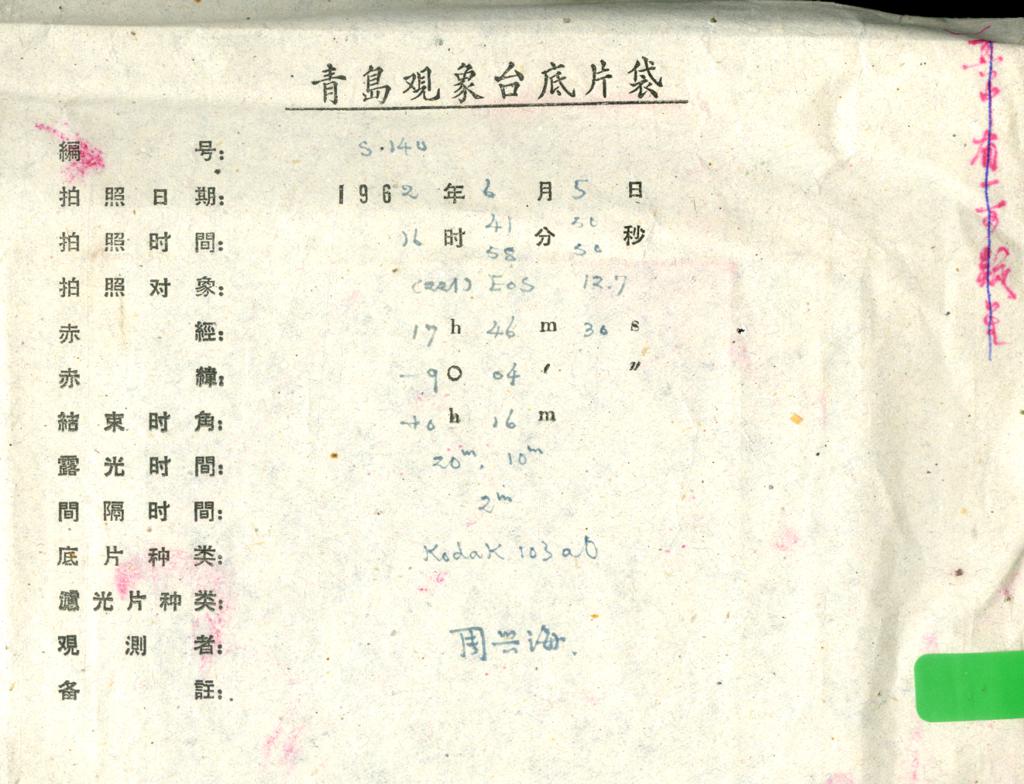 青島观象台底片袋
編号: S.140
拍照日期: 1962年6月5日
拍照时間: 16时 41 58 分 50 50 秒
拍照对象: (221) EOS 12.7
赤經: 17h 46m 30s
赤緯: -9° 04′ ″
結束时角: +0h 16m
露光时間: 20m. 10m
間隔时間: 2m
底片种类: Kodak 103aO
濾光片种类:
观測者: 周兴海.
备註:
有一可